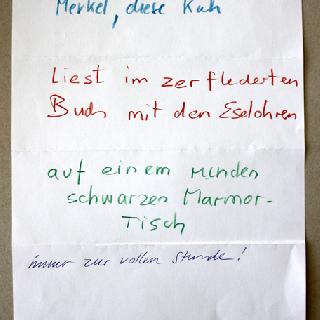 Merkel, diese Kuh
Liest im zerflederten
Buch mit den Eselohren
auf einem runden
schwarzen Marmor-
Tisch
immer zur vollen Stunde!